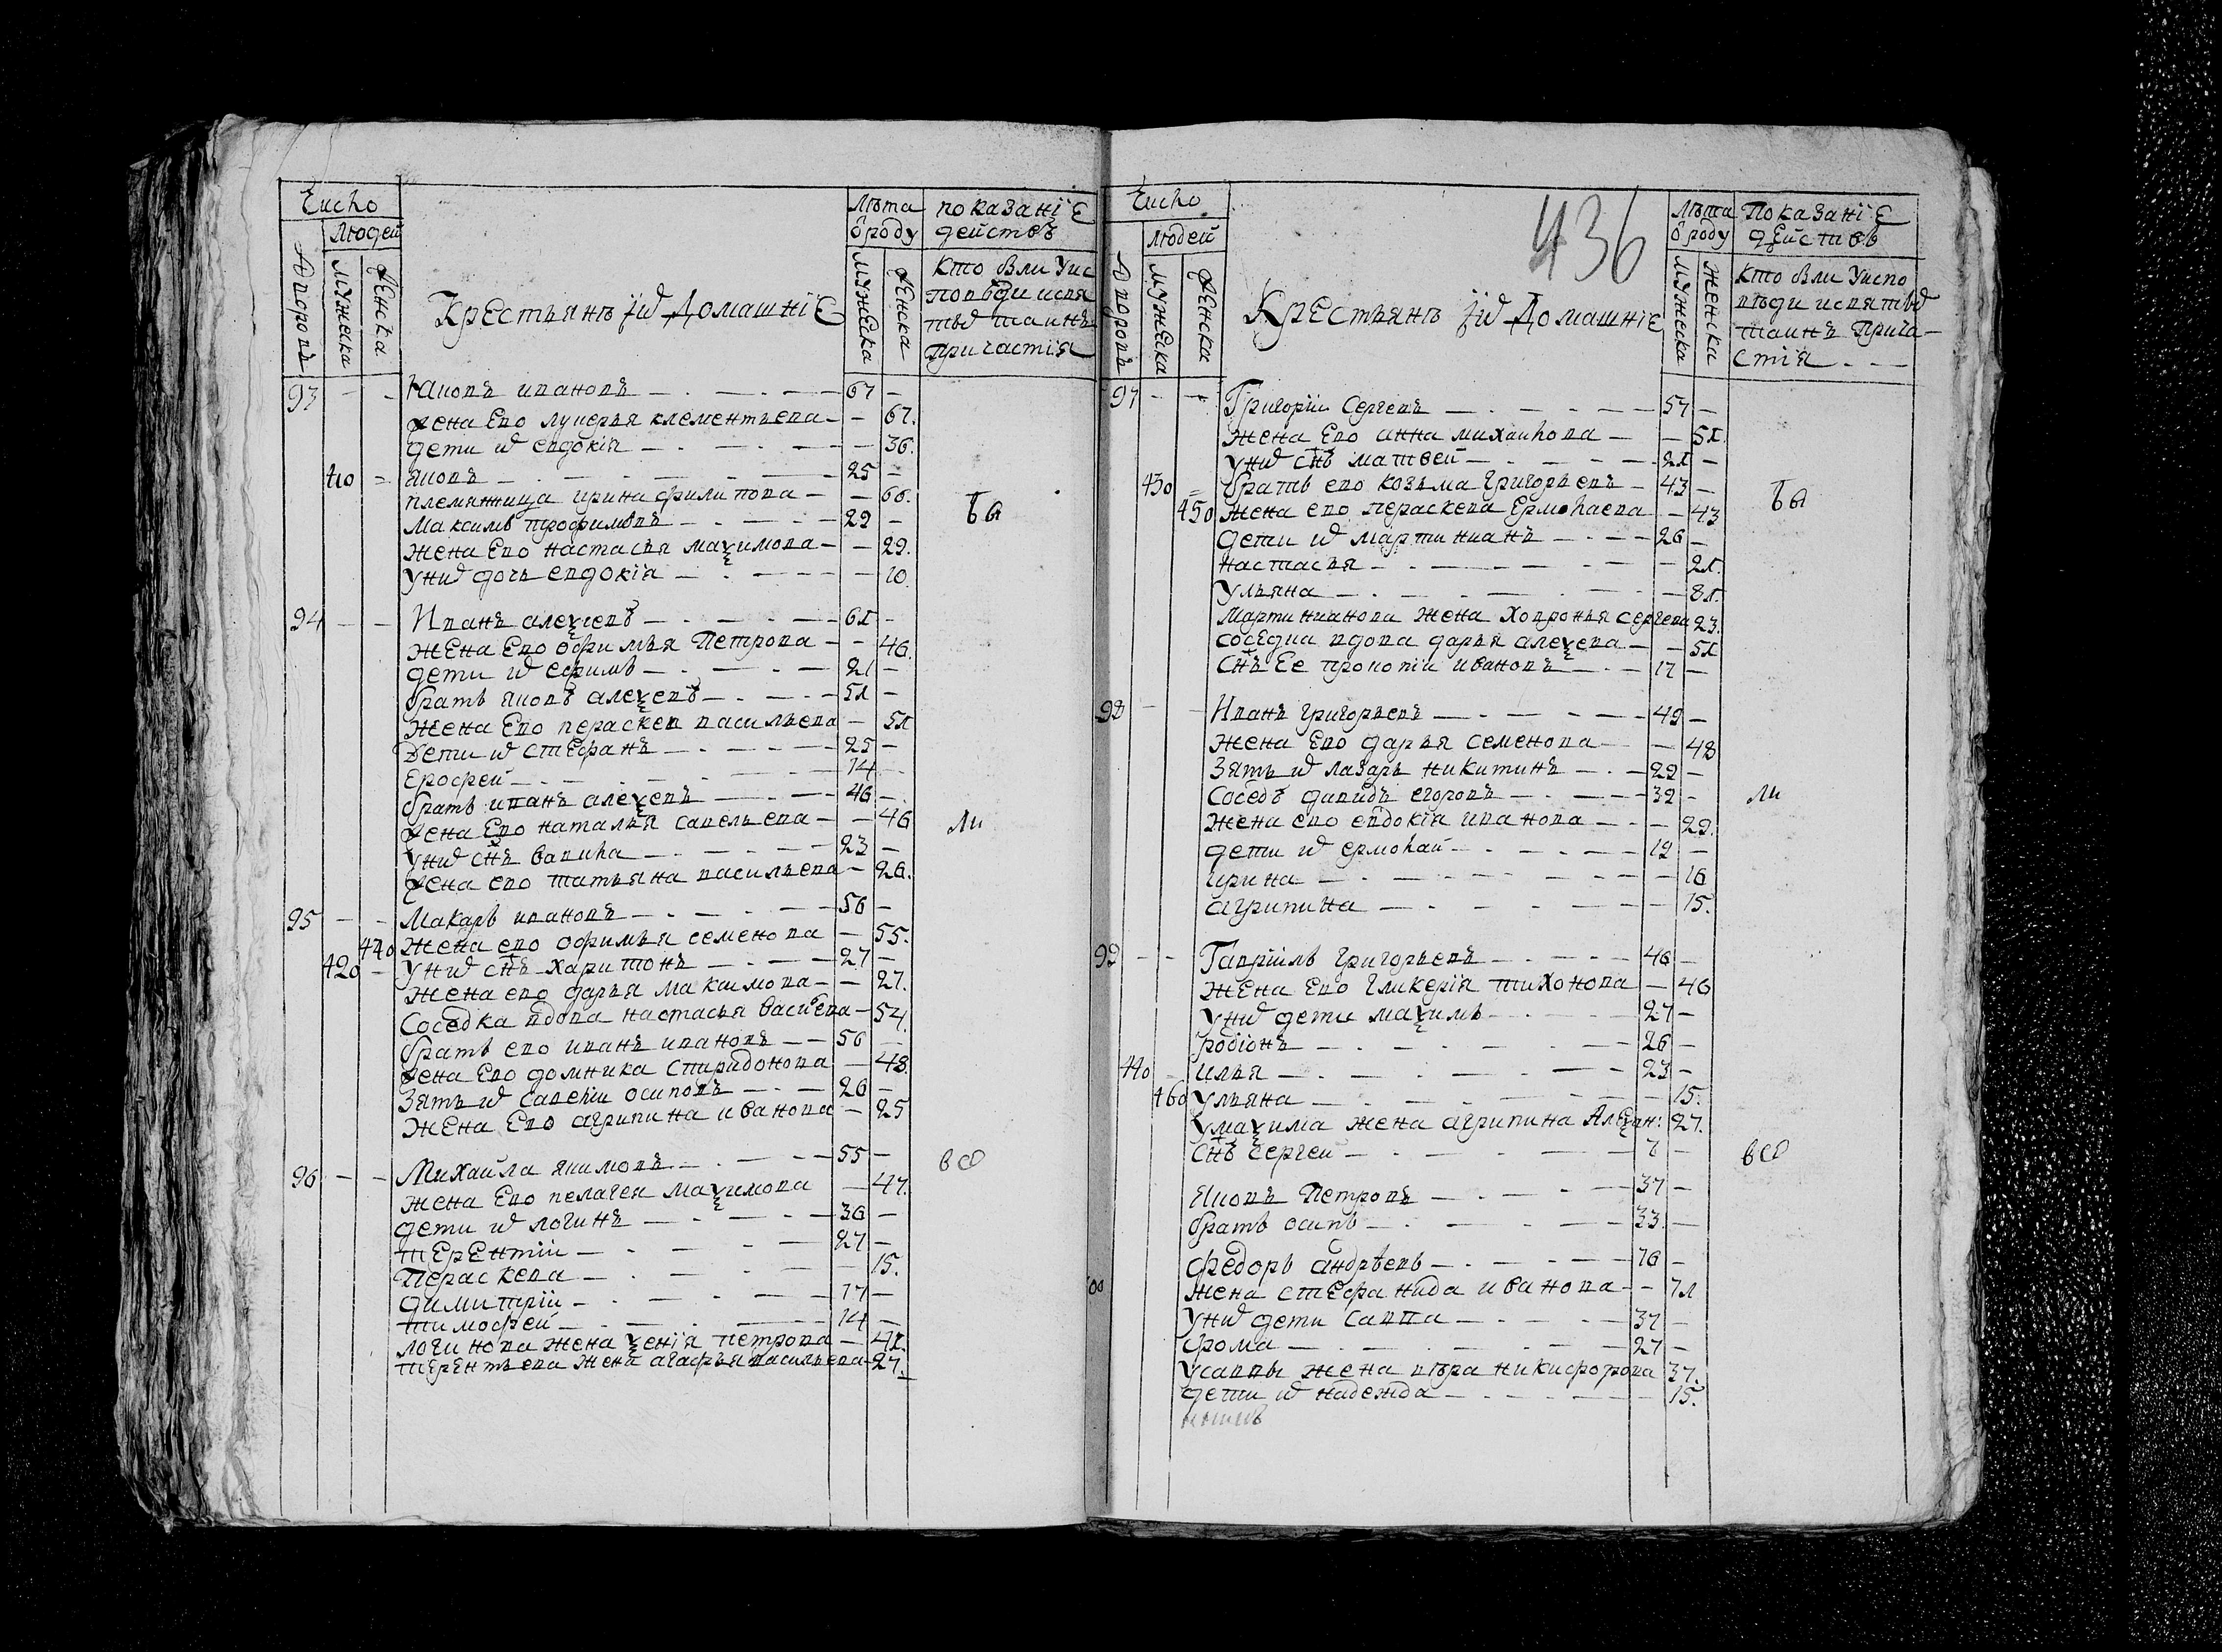 Число
Людей
Дворовъ
Мужеска
Женска
Крестьянъ їихъ Домашніе
Лѣта ѿроду
Мужеска
Женска
показаніе действъ
Кто были уис
поведи исвя
тыхъ таинъ
причастія
93 - - Яковъ ивановъ 67 -
жена Ево лукерья клементьева - 67.
дети ихъ евдокія - 36.
410 - яковъ 25 -
племянница ирина филипова - 60.
Максимъ трофимовъ 29 -
жена Ево настасья маѯимова - 29.
унихъ дочь евдокія - 10.
94 - - Иванъ алеѯеевъ 61 -
жена Ево офимья Петрова - 46.
дети ихъ ефимъ 21 -
братъ яковъ алеѯеевъ 51 -
жена Ево пераскев васильева - 51
Дети ихъ стефанъ 25 -
Ерофей 14 -
братъ иванъ алеѯеевъ 46 -
жена Ево наталья савельева - 46
унихъ снъ вавила 23 -
жена ево татьяна васильева - 26.
95 - - Макаръ ивановъ 56 -
440 жена ево офимья семенова - 55.
420 - унихъ снъ харитонъ 27 -
жена ево дарья максимова - 27.
соседка вдова настасья васильева - 54
братъ ево иванъ ивановъ 50 -
жена Ево домника спиридонова - 48.
Зять ихъ савелій осиповъ 26 -
жена Ево агрипина иванова - 25
96 - - Михайла якимовъ 55 -
жена Ево пелагея маѯимова - 47.
дети ихъ логинъ 36 -
терентій 27 -
Пераскева - 15.
димитрій 17 -
тимофей 14 -
логинова жена ѯенія петрова - 41.
терентьева жена агафья васильева - 27.
бы
ли
всѣ
436
Число
Людей
Дворовъ
Мужеска
Женска
Крестьянъ їихъ Домашніе
Лѣта ѿроду
Мужеска
Женска
Показаніе действъ
Кто были уиспо
вѣди исвятыхъ
таинъ прича-
стія
97 - - Григорій Сергеевъ 57 -
жена Ево анна михайлова - 51.
унихъ снъ матвей 21 -
430 - братъ ево козьма григорьевъ 43 -
450 жена ево пераскева Ермолаева - 43
дети ихъ мартиніанъ 26 -
настасья - 21.
ульяна - 81.
Мартиніанова жена ховронья сергева 23.
соседка вдова дарья алеѯеева - 51
снъ Ее прокопіи ивановъ 17 -
98 - - Иванъ григорьевъ 49 -
жена Ево дарья семенова - 48
Зять ихъ лазарь никитинъ 29 -
Соседъ давидъ егоровъ 32 -
жена ево евдокія иванова - 29.
дети ихъ ермолай 19 -
ирина - 16
агрипина - 15.
99 - - Гавріилъ григорьевъ 46 -
жена Ево гликерія тихонова - 46
унихъ дети маѯимъ 27 -
родіонъ 26 -
440 - илья 23 -
460 ульяна - 15.
умаѯима жена агрипина Алеѯан: 27.
снъ сергей -
Яковъ Петровъ 37 -
братъ осипъ 33 -
федоръ андрѣевъ 76 -
жена стефанида иванова - 71
унихъ дети савва 37 -
фома 27 -
усаввы жена вѣра никифорова 37.
дети ихъ надежда - 15.
бы
ли
всѣ